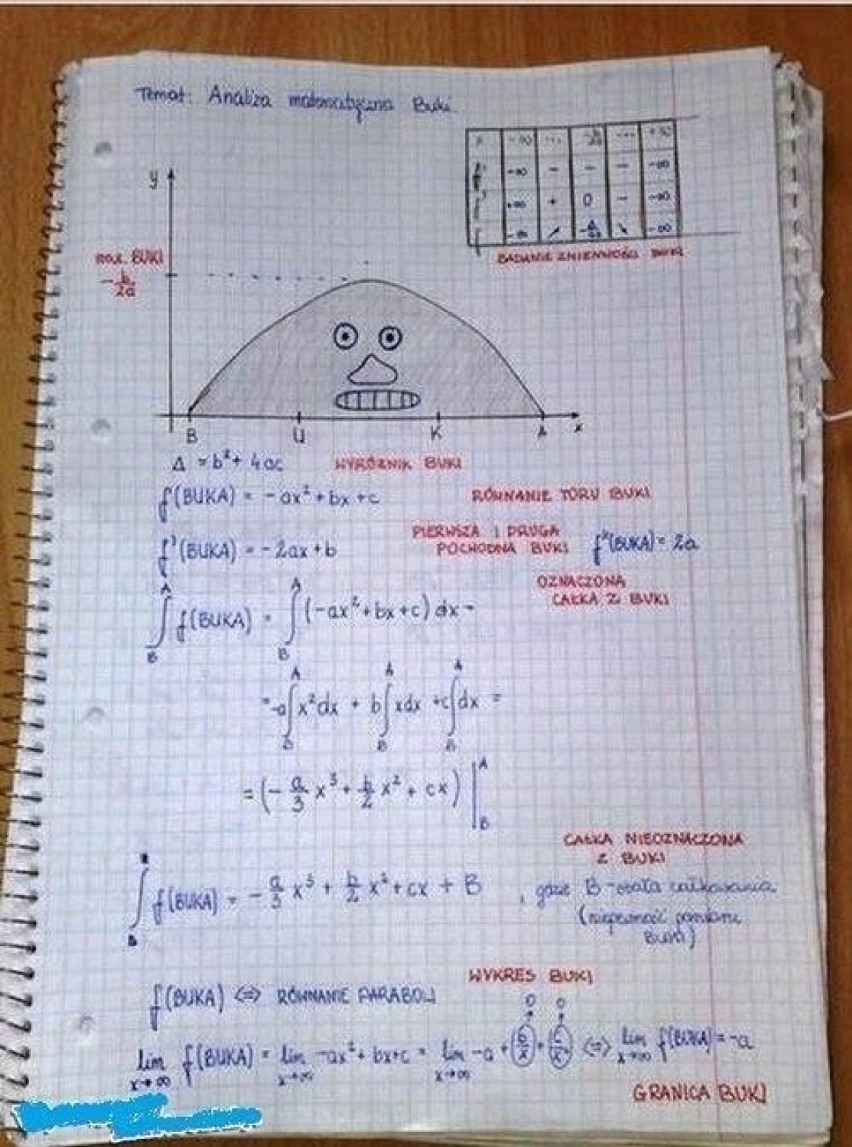 Temat: Analiza matematyczna Buki
x | -∞ | ... | -b/2a | ... | +∞
f'' | -∞ | - | - | - | -∞
f' | +∞ | + | 0 | - | -∞
f | -∞ | ↗ | ↘ | -∞
BADANIE ZMIENNOŚCI BUKI
y
max. BUKI
-b/2a
B U K A x
Δ = b² + 4ac WYRÓŻNIK BUKI
f(BUKA) = -ax² + bx + c RÓWNANIE TORU BUKI
f'(BUKA) = -2ax + b PIERWSZA I DRUGA POCHODNA BUKI f''(BUKA) = 2a
OZNACZONA
CAŁKA Z BUKI
∫_B^A f(BUKA) = ∫_B^A (-ax² + bx + c) dx =
= -a∫_B^A x²dx + b∫_B^A xdx + c∫_B^A dx =
= (-a/3 x³ + b/2 x² + cx) |_B^A
CAŁKA NIEOZNACZONA
Z BUKI
∫ f(BUKA) = -a/3 x³ + b/2 x² + cx + B , gdzie B - stała całkowania
(niepewność pomiaru
Buki)
WYKRES BUKI
f(BUKA) ⇔ RÓWNANIE PARABOLI
0 0
lim x→∞ f(BUKA) = lim x→∞ -ax² + bx + c = lim x→∞ -a + b/x + c/x² ⇔ lim x→∞ f(BUKA) = -a
GRANICA BUKI